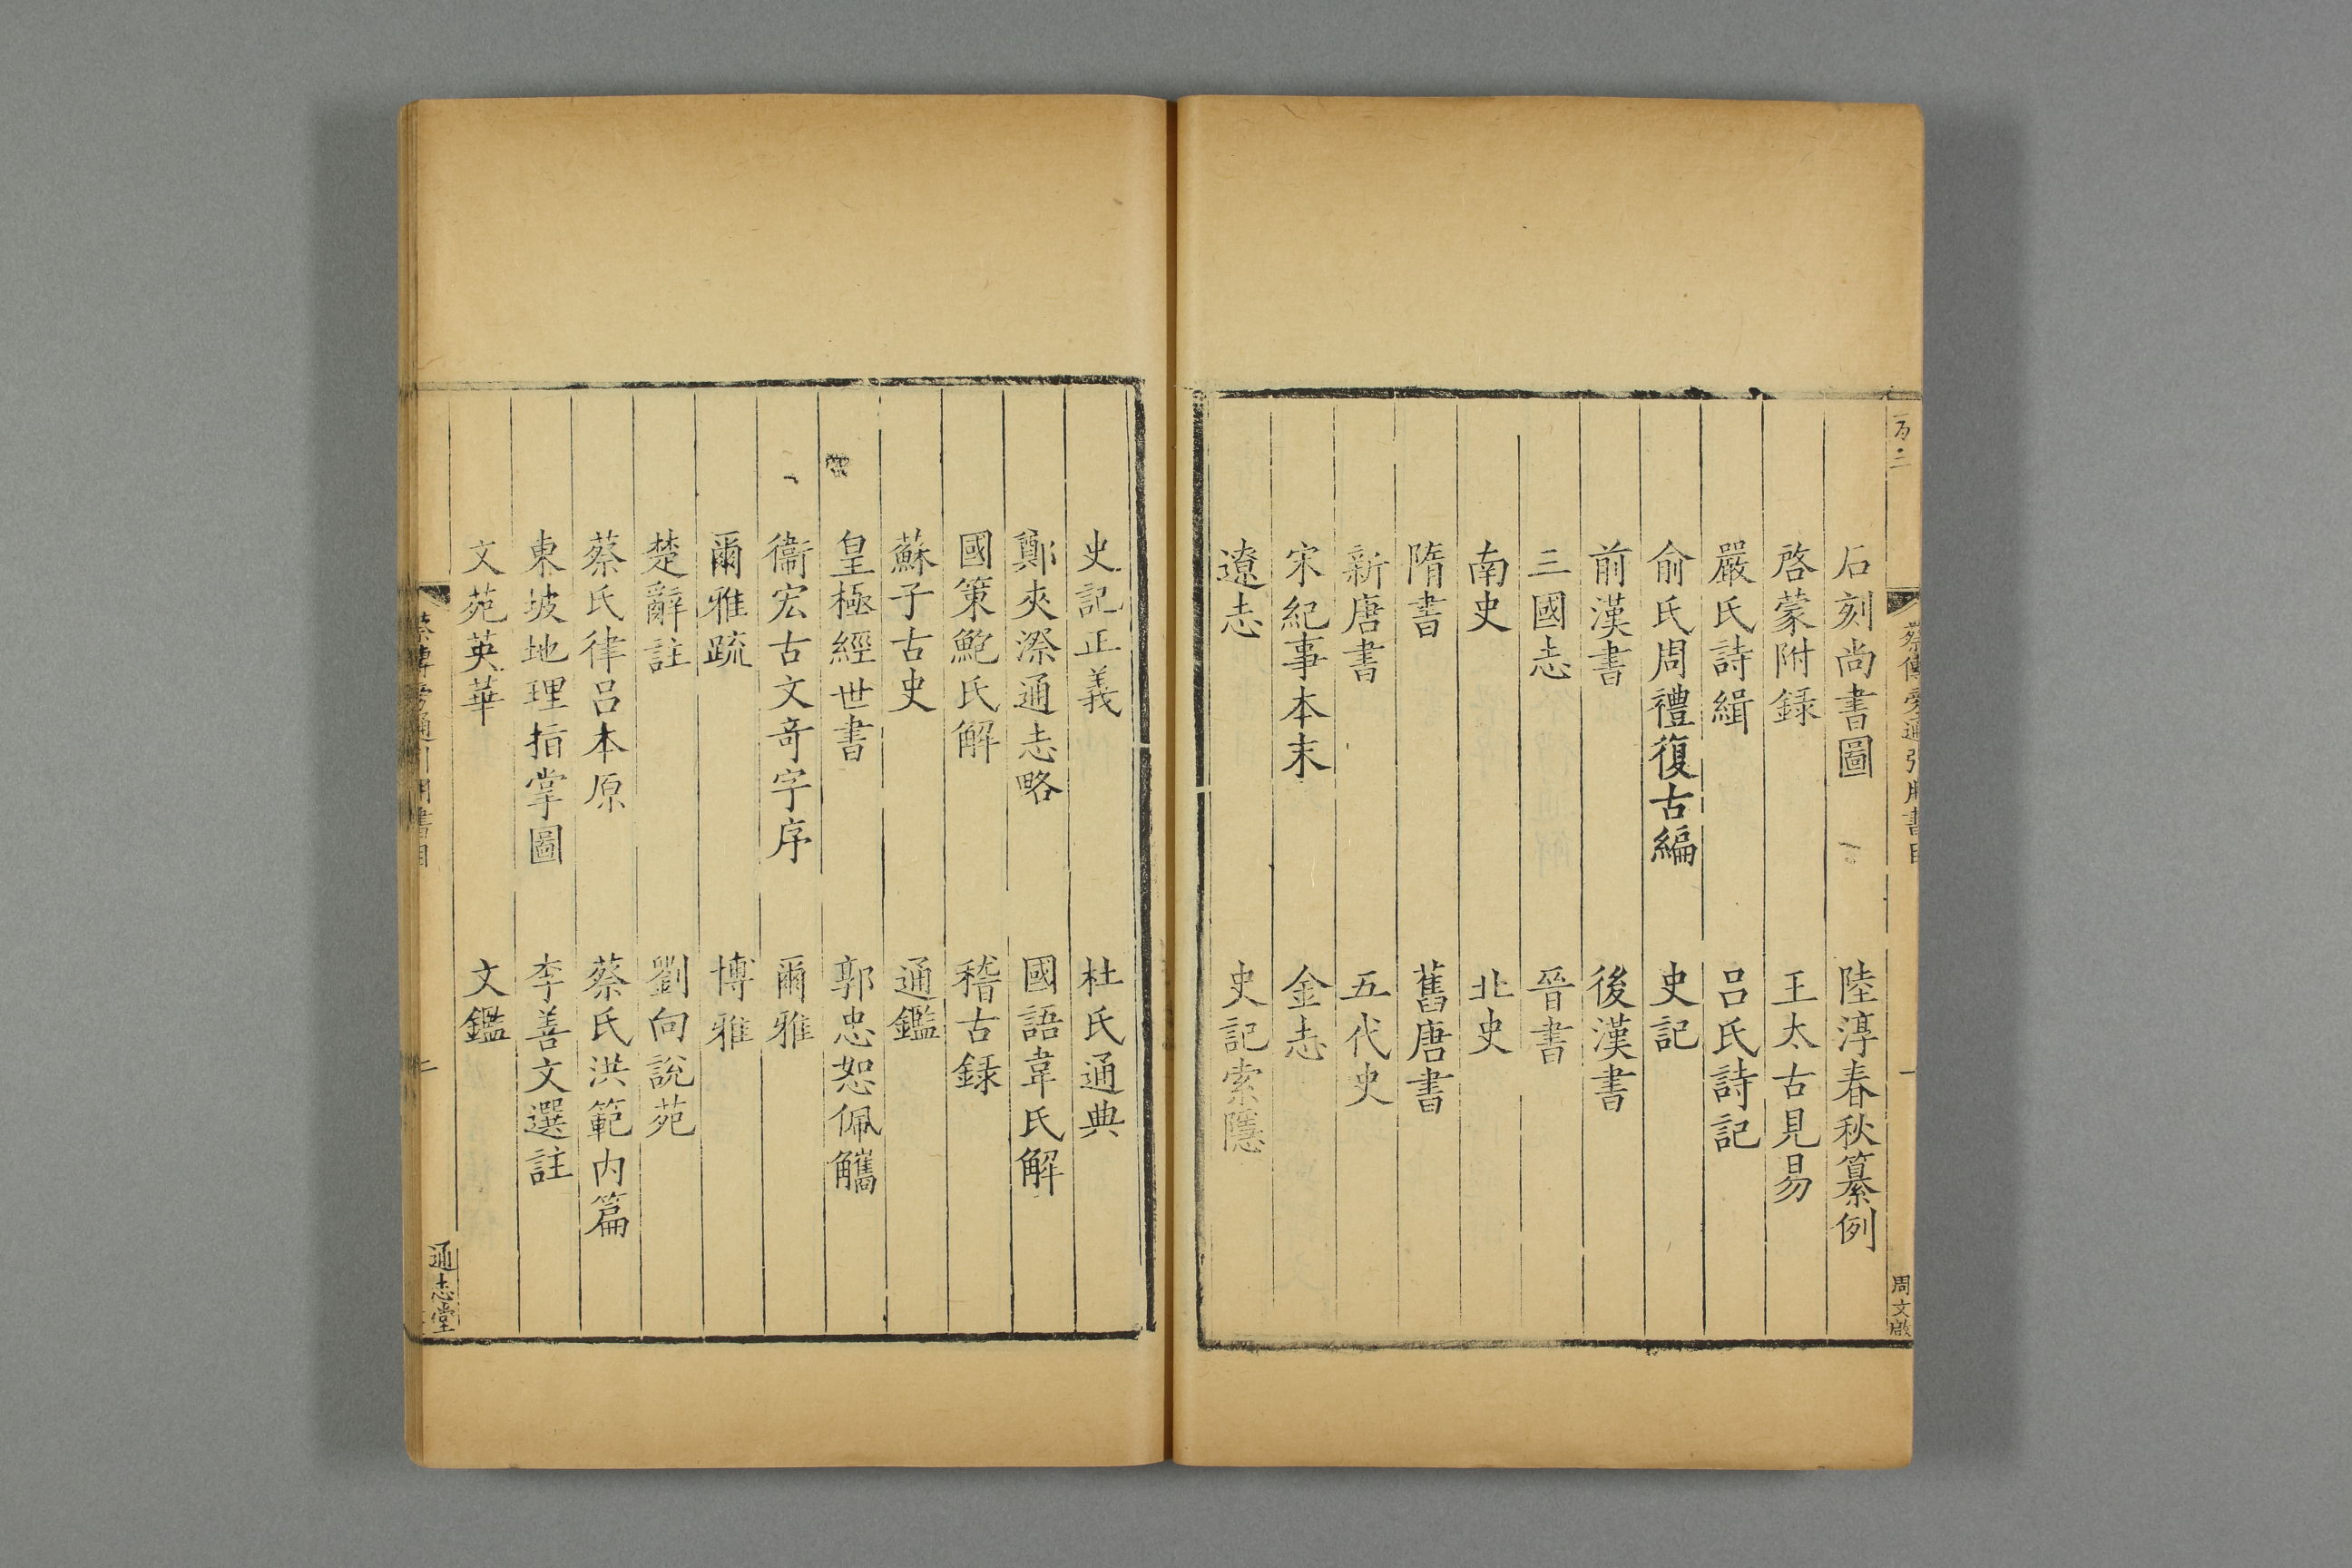 石刻尚書圖　陸淳春秋纂例
啓蒙附録　王太古見易
嚴氏詩緝　吕氏詩記
俞氏周禮復古編　史記
前漢書　後漢書
三國志　晉書
南史　北史
隋書　舊唐書
新唐書　五代史
宋紀事本末　金志
遼志　史記索隱
史記正義　杜氏通典
鄭夾漈通志略　國語韋氏解
國策鮑氏解　稽古録
蘇子古史　通鑑
皇極經世書　郭忠恕佩觿
衞宏古文竒字序　爾雅
爾雅疏　博雅
楚辭註　劉向說苑
蔡氏律吕本原　蔡氏洪範内篇
東坡地理指掌圖　李善文選註
文苑英華　文鑑
蔡傳旁通引用書目
二
通志堂
周文啟